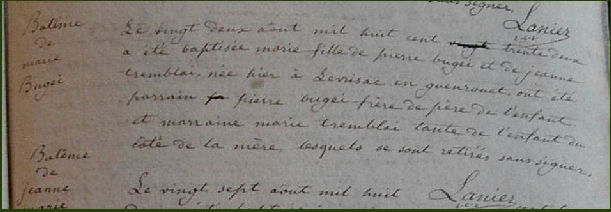 sans signer.
Lanier
Batême de marie Bugei
Le vingt deux aout mil huit cent vingt trente deux
a été baptisée marie fille de pierre bugei et de jeanne
tremblai, née hier à Levrisac en guenrouet, ont été
parrain pierre bugei frere de père de l'enfant
et marraine marie tremblai tante de l'enfant du
coté de la mère, lesquels se sont retirés sans signer.
Lanier
Batême
de
jeanne
marie
Le vingt sept aout mil huit